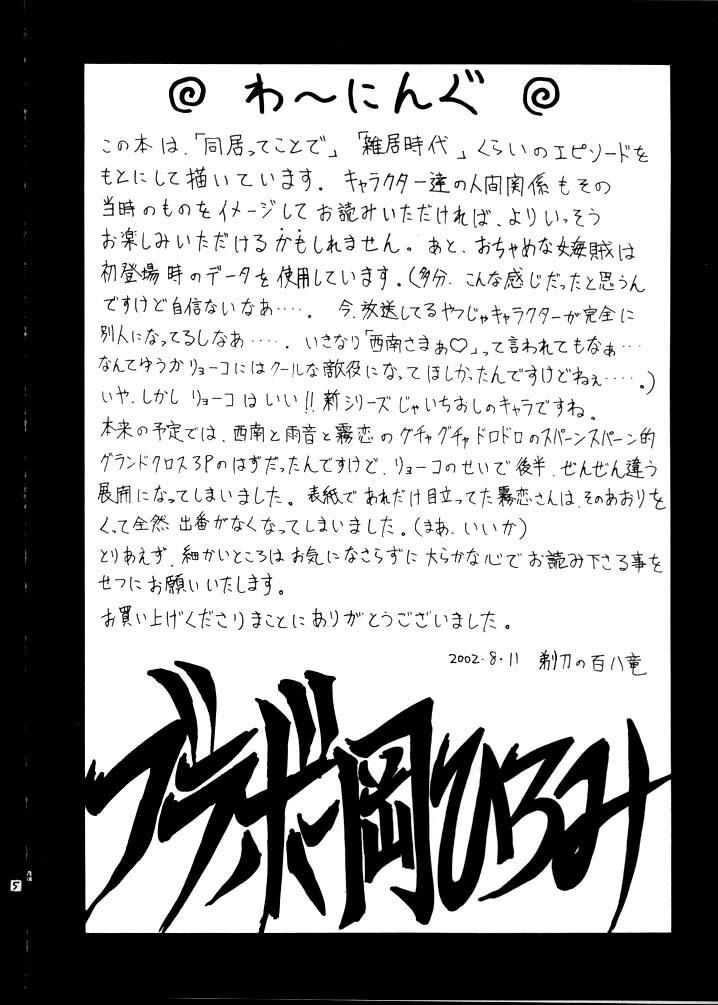 わ〜にんぐ
この本は、「同居ってことで」「雑居時代」くらいのエピソードを
もとにして描いています。キャラクター達の人間関係もその
当時のものをイメージしてお読みいただければ、よりいっそう
お楽しみいただけるかもしれません。あと、おちゃめな女海賊は
初登場時のデータを使用しています。(多分、こんな感じだったと思うん
ですけど自信ないなあ‥‥。今、放送してるやつじゃキャラクターが完全に
別人になってるしなぁ‥‥‥。いきなり「西南さまぁ♡」って言われてもなぁ…
なんてゆうかリョーコにはクールな敵役になってほしかったんですけどねぇ‥‥‥。)
いや、しかしリョーコはいい!!新シリーズじゃいちおしのキャラですね。
本来の予定では、西南と雨音と霧恋のグチャグチャドロドロのスパーンスパーン的
グランドクロス3Pのはずだったんですけど、リョーコのせいで後半、ぜんぜん違う
展開になってしまいました。表紙であれだけ目立ってた霧恋さんは、そのあおりを
くって全然出番がなくなってしまいました。(まあ、いいか)
とりあえず、細かいところはお気になさらずに大らかな心でお読み下さる事を
せつにお願いいたします。
お買い上げくださりまことにありがとうございました。
2002.8.11 剃刀の百八竜
ブラボー岡ひろみ
5